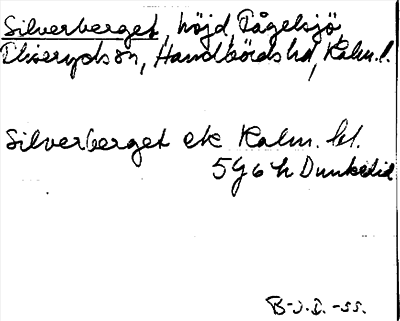 Silverberget, höjd, Tågelsjö,
Fliseryds sn, Handbörds hd, Kalm. l.
Silverberget ek Kalm. bl.
5 g 6 h Dunkelid
B-J.D. -55.